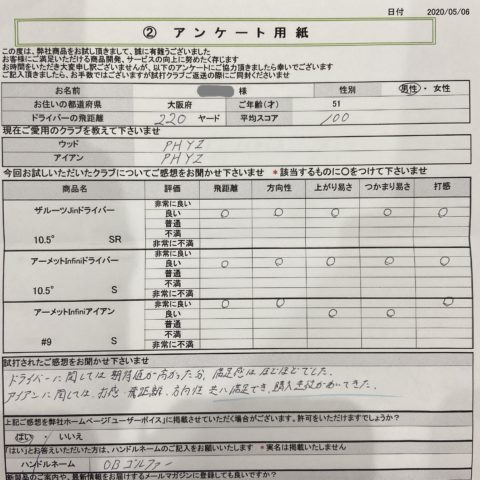 日付 2020/05/06
② アンケート用紙
この度は、弊社商品をお試し頂きまして、誠に有難うございました
お客様にご満足いただける商品開発、サービスの向上に努めたく存じます
お時間をいただき大変申し訳ございませんが、以下のアンケートにご協力頂きましたら幸いでございます
ご記入頂きましたら、お手数ではございますが試打クラブご返送の際にご同封くださいませ
お名前 様 性別 男性 ・ 女性
お住いの都道府県 大阪府 ご年齢(才) 51
ドライバーの飛距離 220 ヤード 平均スコア 100
現在ご愛用のクラブを教えて下さいませ
ウッド PHYZ
アイアン PHYZ
今回お試しいただいたクラブについてご感想をお聞かせ下さいませ *該当するものに〇をつけて下さいませ
商品名 評価 飛距離 方向性 上がり易さ つかまり易さ 打感
ザルーツJinドライバー
10.5° SR
非常に良い
良い 〇 〇 〇 〇 〇
普通
不満
非常に不満
アーメットInfiniドライバー
10.5° S
非常に良い
良い 〇 〇 〇 〇 〇
普通
不満
非常に不満
アーメットInfiniアイアン
#9 S
非常に良い 〇 〇 〇
良い 〇 〇
普通
不満
非常に不満
試打されたご感想をお聞かせ下さいませ
ドライバーに関しては期待値が高かった分、満足感はほどほどでした。
アイアンに関しては、打感・飛距離、方向性 共に満足でき、購入意欲がわいてきた。
上記ご感想を弊社ホームページ「ユーザーボイス」に掲載させていただく場合がございます。許可をいただけますでしょうか?
はい ・ いいえ
「はい」とお答えいただいた方は、ハンドルネームのご記入をお願いいたします *実名は掲載いたしません
ハンドルネーム OBゴルファー
新商品のご案内や、最新情報をお届けするメールマガジンに登録しても良いですか?